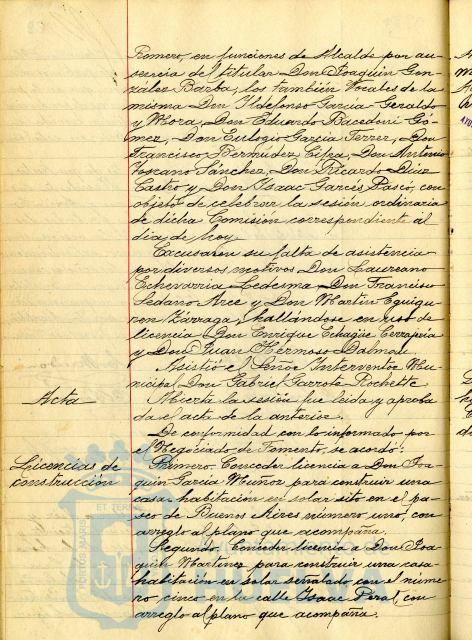 Romero, en funciones de Alcalde por au-
sencia del titular Don Joaquín Gon-
zález Barba, los también Vocales de la
misma Don Ildefonso García-Geraldo
y Mora, Don Eduardo Bacedoni Gó-
mez, Don Eulogio García Ferrer, Don
Francisco Bermúdez Cifra, Don Antonio
Toscano Sánchez, Don Ricardo Díaz
Castro y Don Isaac Garcés Pasco, con
objeto de celebrar la sesión ordinaria
de dicha Comisión correspondiente al
día de hoy
Excusaron su falta de asistencia
por diversos motivos Don Laureano
Echevarría Ledesma, Don Francisco
Sedano Arce y Don Martín Eguigu-
ren Zárraga, hallándose en uso de
licencia Don Enrique Echagüe
y Don Juan Hermoso Dalmou
Asistió el Señor Interventor Mu-
nicipal Don Gabriel Garrote Rochette
Acta
Abierta la sesión fue leida y aproba
da el acta de la anterior.
De conformidad con lo informado por
el Negociado de Fomento, se acordó:
Licencias de
construcción
Primero. Conceder licencia a Don Joa
quín García Muñoz para construir una
casa-habitación en solar sito en el pa-
seo de Buenos Aires número uno, con
arreglo al plano que acompaña.
Segundo. Conceder licencia a Don Joa
quín Martínez para construir una casa-
habitación en solar señalado con el núme
ro cinco en la calle Isaac Peral, con
arreglo al plano que acompaña.